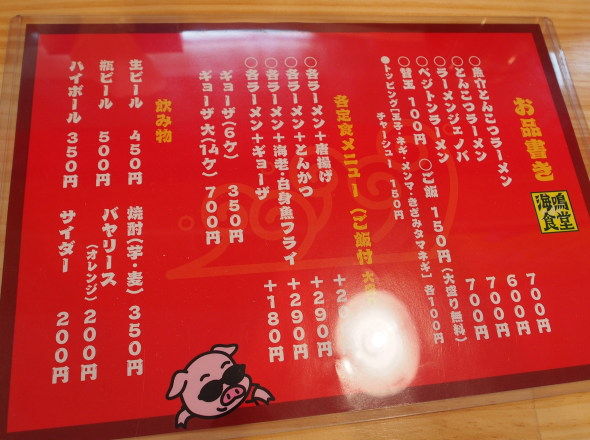 お品書き
海鳴
食堂
○魚介とんこつラーメン 700円
○とんこつラーメン 600円
○ラーメンジェノバ 700円
○ベジトンラーメン 700円
○替玉 100円 ○ご飯 150円(大盛り無料)
●トッピング【玉子・ネギ・メンマ・きざみタマネギ】各100円
チャーシュー 150円
各定食メニュー(ご飯付 大
○各ラーメン+唐揚げ
○各ラーメン+とんかつ +290円
○各ラーメン+海老・白身魚フライ +290円
○各ラーメン+ギョーザ +180円
ギョーザ(6ケ) 350円
ギョーザ大(14ケ) 700円
飲み物
生ビール 450円 焼酎(芋・麦) 350円
瓶ビール 500円 バヤリース(オレンジ) 200円
ハイボール 350円 サイダー 200円